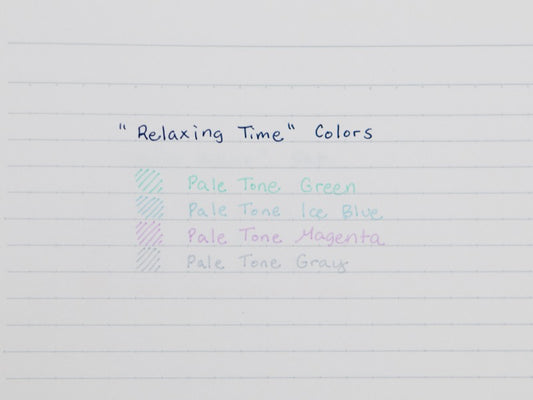 "Relaxing Time" Colors
Pale Tone Green
Pale Tone Ice Blue
Pale Tone Magenta
Pale Tone Gray